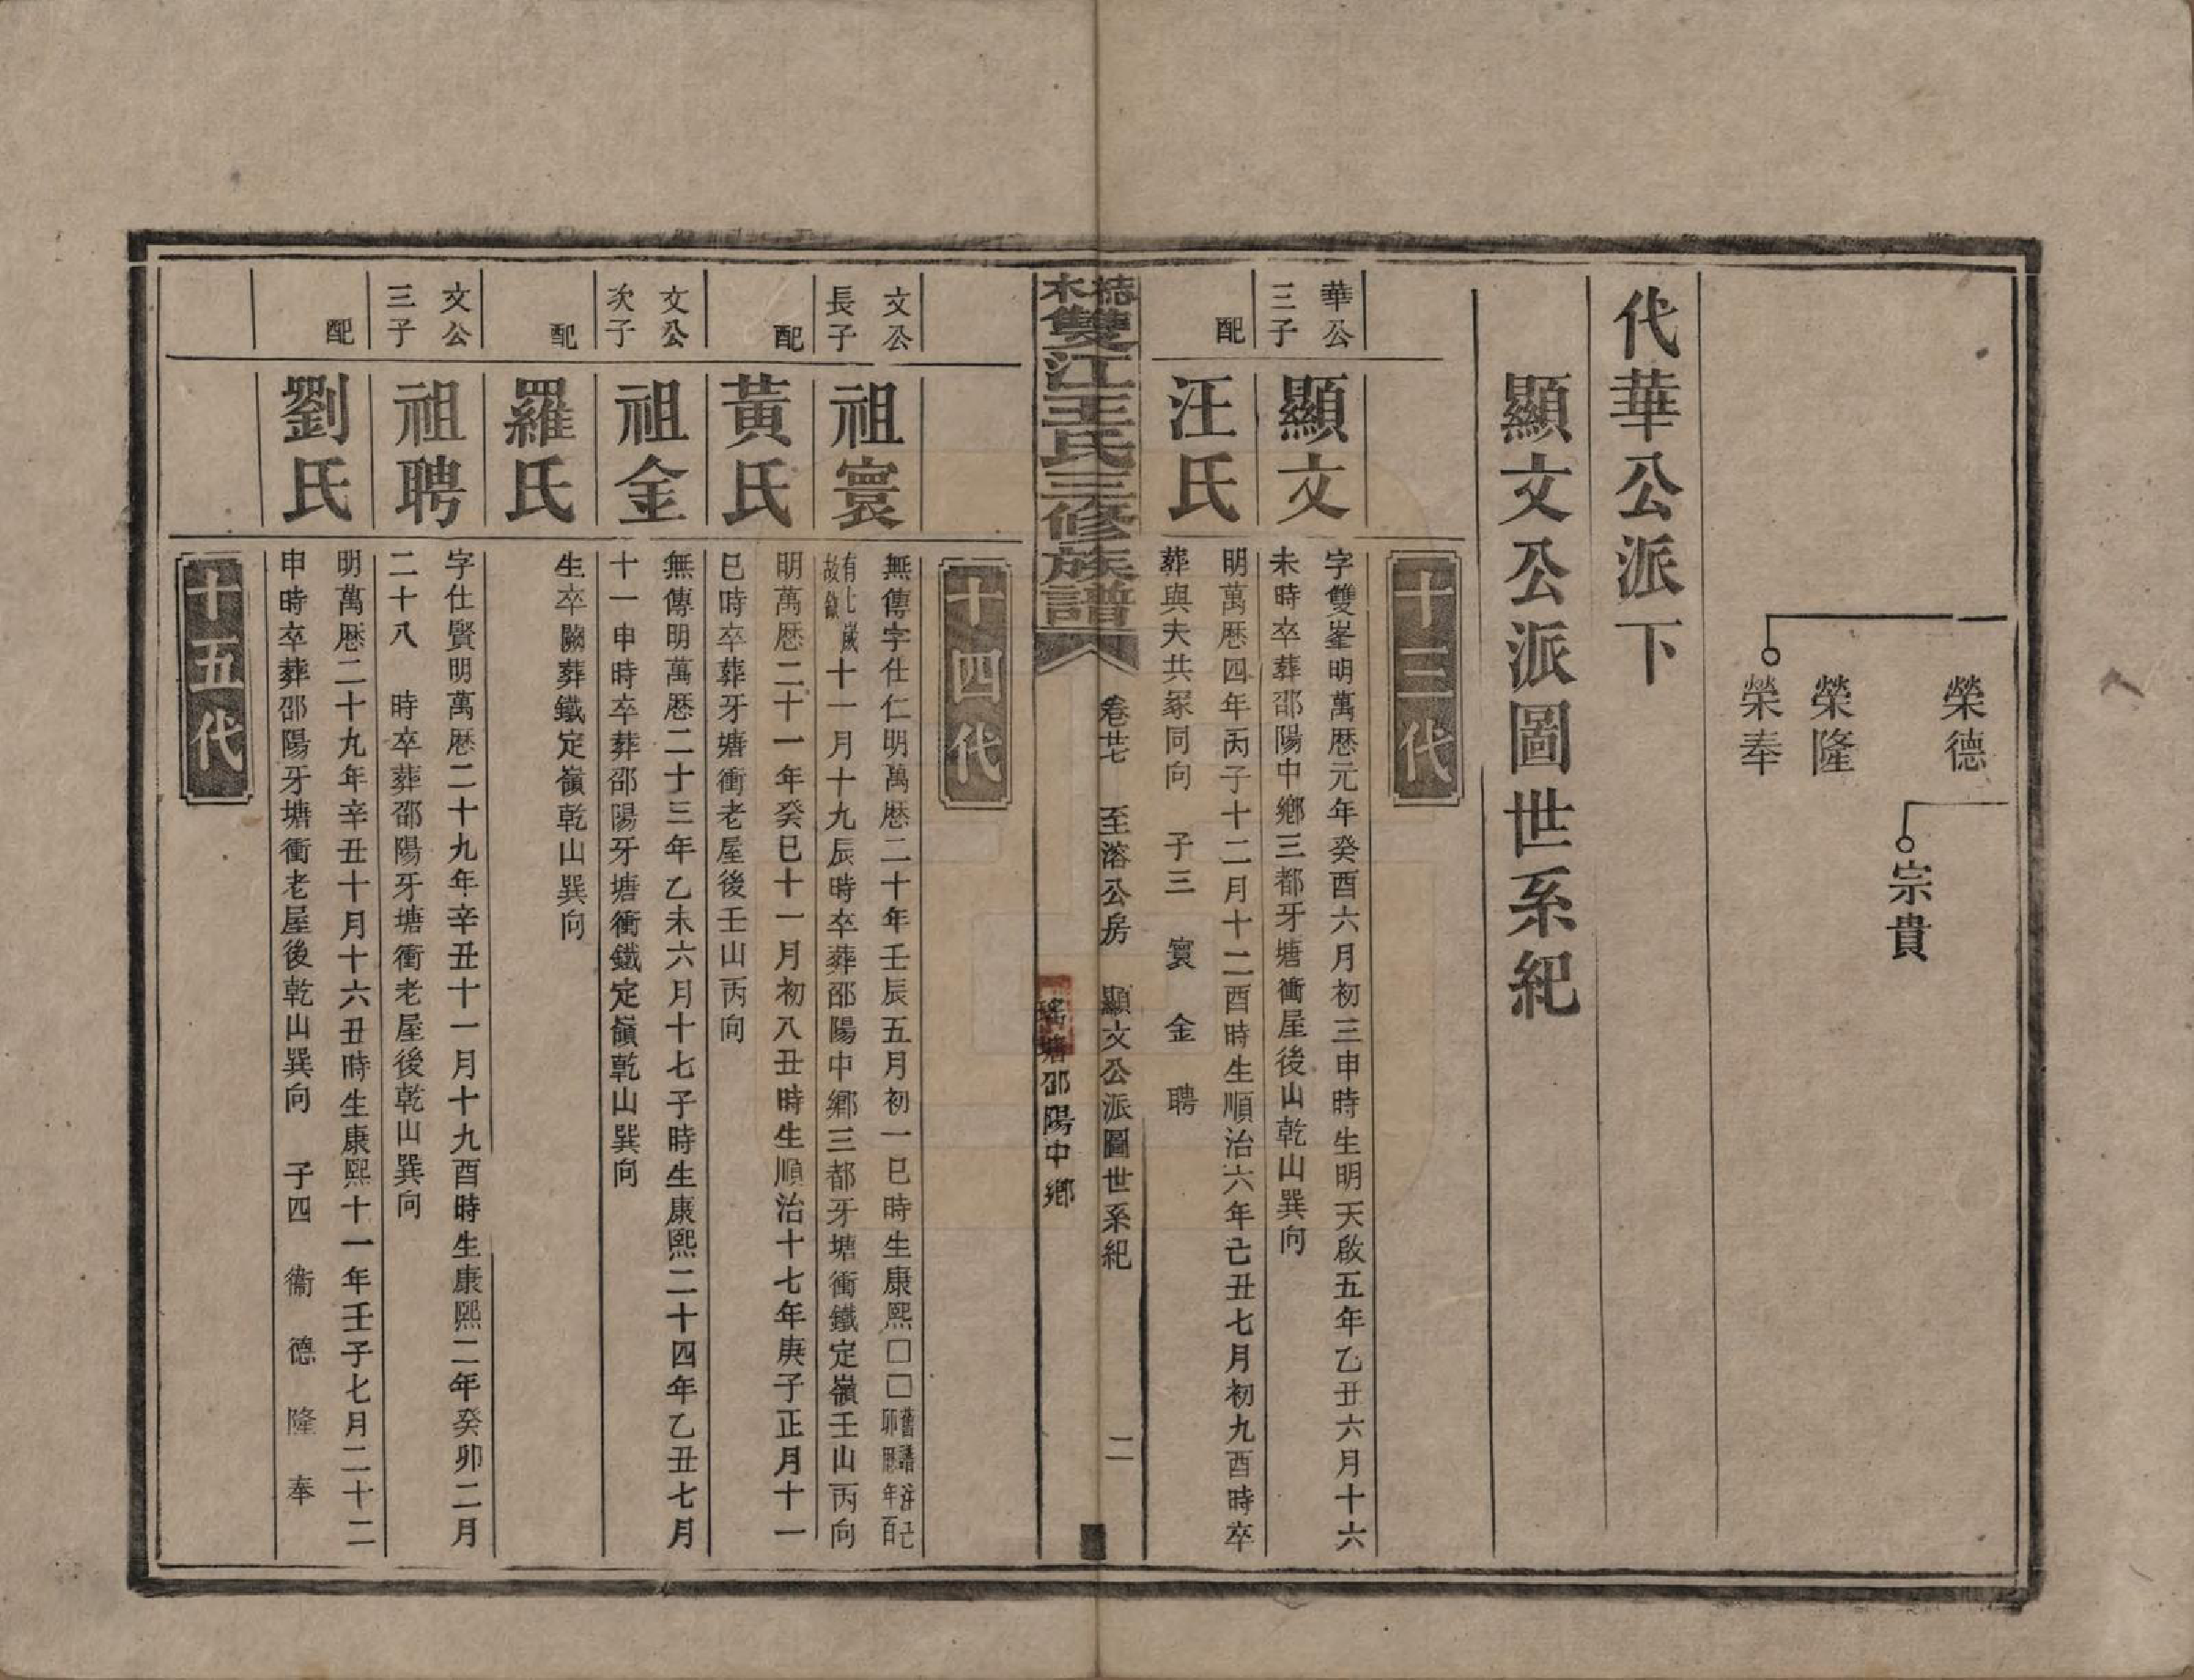 榮德
宗貴
榮隆
榮奉
代華公派下
顯文公派圖世系紀
十三代
華公三子
顯文
字雙峯明萬歷元年癸酉六月初三申時生明天啟五年乙丑六月十六
未時卒葬邵陽中鄉三都牙塘衝屋後山乾山巽向
配
汪氏
明萬歷四年丙子十二月十二酉時生順治六年己丑七月初九酉時卒
葬與夫共冡同向 子三 寰 金 聘
雙江王氏三修族譜
卷廿 至溶公房 顯文公派圖世系紀 二
瑤塘邵陽中鄉
十四代
文公長子
祖寰
無傳字仕仁明萬歷二十年壬辰五月初一巳時生康熙□□舊譜注己卯歷年百
有七歲故錄十一月十九辰時卒葬邵陽中鄉三都牙塘衝鐵定嶺壬山丙向
配
黃氏
明萬歷二十一年癸巳十一月初八丑時生順治十七年庚子正月十一
巳時卒葬牙塘衝老屋後壬山丙向
文公次子
祖金
無傳明萬歷二十三年乙未六月十七子時生康熙二十四年乙丑七月
十一申時卒葬邵陽牙塘衝鐵定嶺乾山巽向
配
羅氏
生卒闕葬鐵定嶺乾山巽向
文公三子
祖聘
字仕賢明萬歷二十九年辛丑十一月十九酉時生康熙二年癸卯二月
二十八 時卒葬邵陽牙塘衝老屋後乾山巽向
配
劉氏
明萬歷二十九年辛丑十月十六丑時生康熙十一年壬子七月二十二
申時卒葬邵陽牙塘衝老屋後乾山巽向 子四 衞 德 隆 奉
十五代